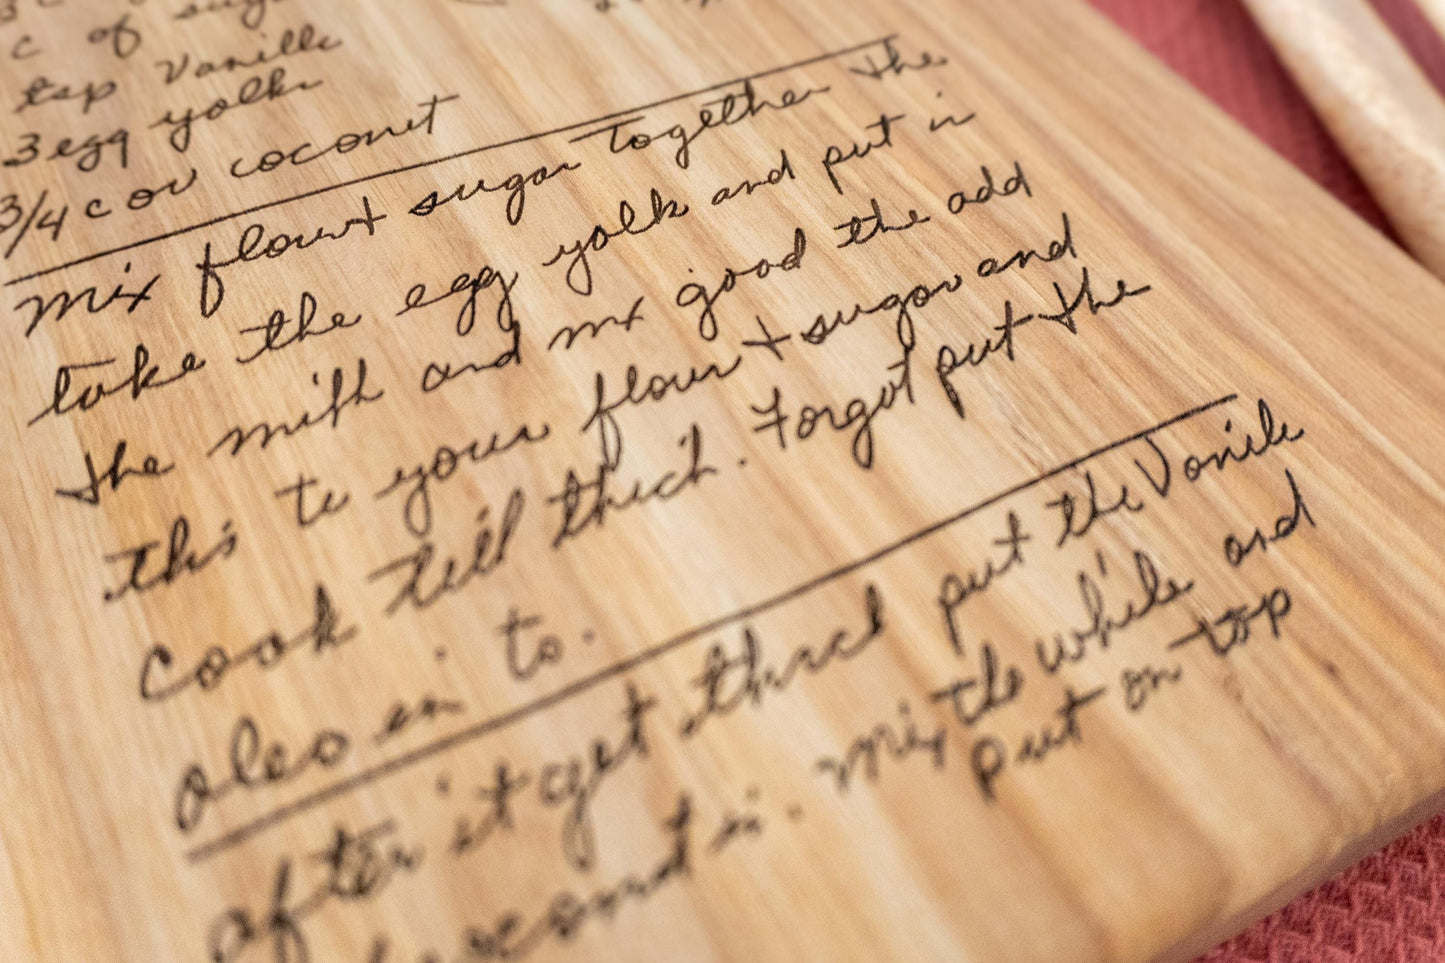 c of sug
tsp Vanille
3 egg yolks
3/4 c ov coconut
mix flour + sugar together the
take the egg yolk and put in
the milk and mx good the add
this to your flour + sugar and
cook till thick. Forgot put the
oleo in to.
after it get thick put the Vanile
coconut in. mix the while and
put on top